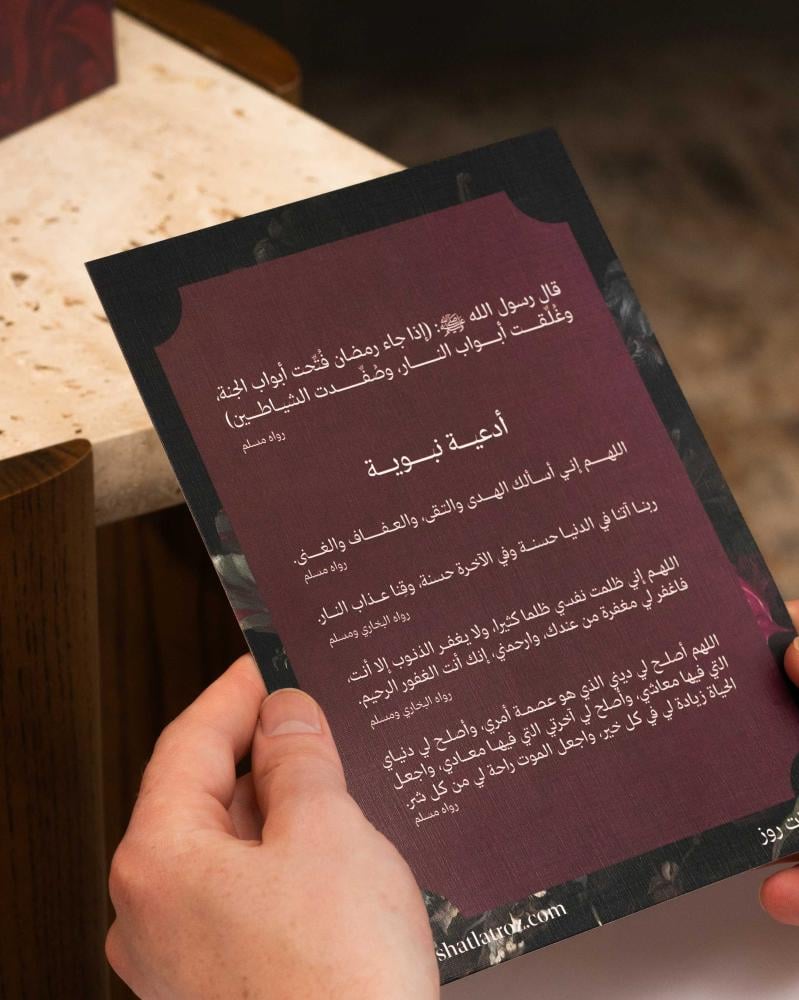 قال رسول الله ﷺ: (إذا جاء رمضان فُتّحت أبواب الجنة،
وغُلّقت أبـواب النـار، وصُفّـدت الشياطـين)
رواه مسلم
أدعيـة نبـويـة
اللهـم إني أسألك الهدى والتقى، والعـفـاف والغـنى.
رواه مسلم
ربنا آتنا في الدنيا حسنة وفي الآخرة حسنة، وقنا عذاب النار.
رواه البخاري ومسلم
اللهم إني ظلمت نفسي ظلما كثيرا، ولا يغفر الذنوب إلا أنت،
فاغفر لي مغفرة من عندك، وارحمني، إنك أنت الغفور الرحيم.
رواه البخاري ومسلم
اللهم أصلح لي ديني الذي هو عصمة أمري، وأصلح لي دنياي
التي فيها معاشي، وأصلح لي آخرتي التي فيها معادي، واجعل
الحياة زيادة لي في كل خير، واجعل الموت راحة لي من كل شر.
رواه مسلم
روز
shatlatroz.com